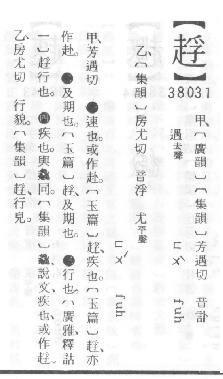 【】
38031
甲、〔廣韻〕〔集韻〕芳遇切 音訃
遇去聲 ㄈㄨˋ fuh
乙、〔集韻〕房尤切 音浮 尤平聲
ㄈㄨˋ fuh
甲、芳遇切 ㊀速也。或作赴。〔玉篇〕、疾也。亦
作赴。㊁及期也。〔玉篇〕、及期也。㊂行也。〔廣雅釋詁
一〕、行也。㊃疾也。與同。〔集韻〕、說文、疾也。或作。
乙、房尤切 行貌。〔集韻〕、行皃。